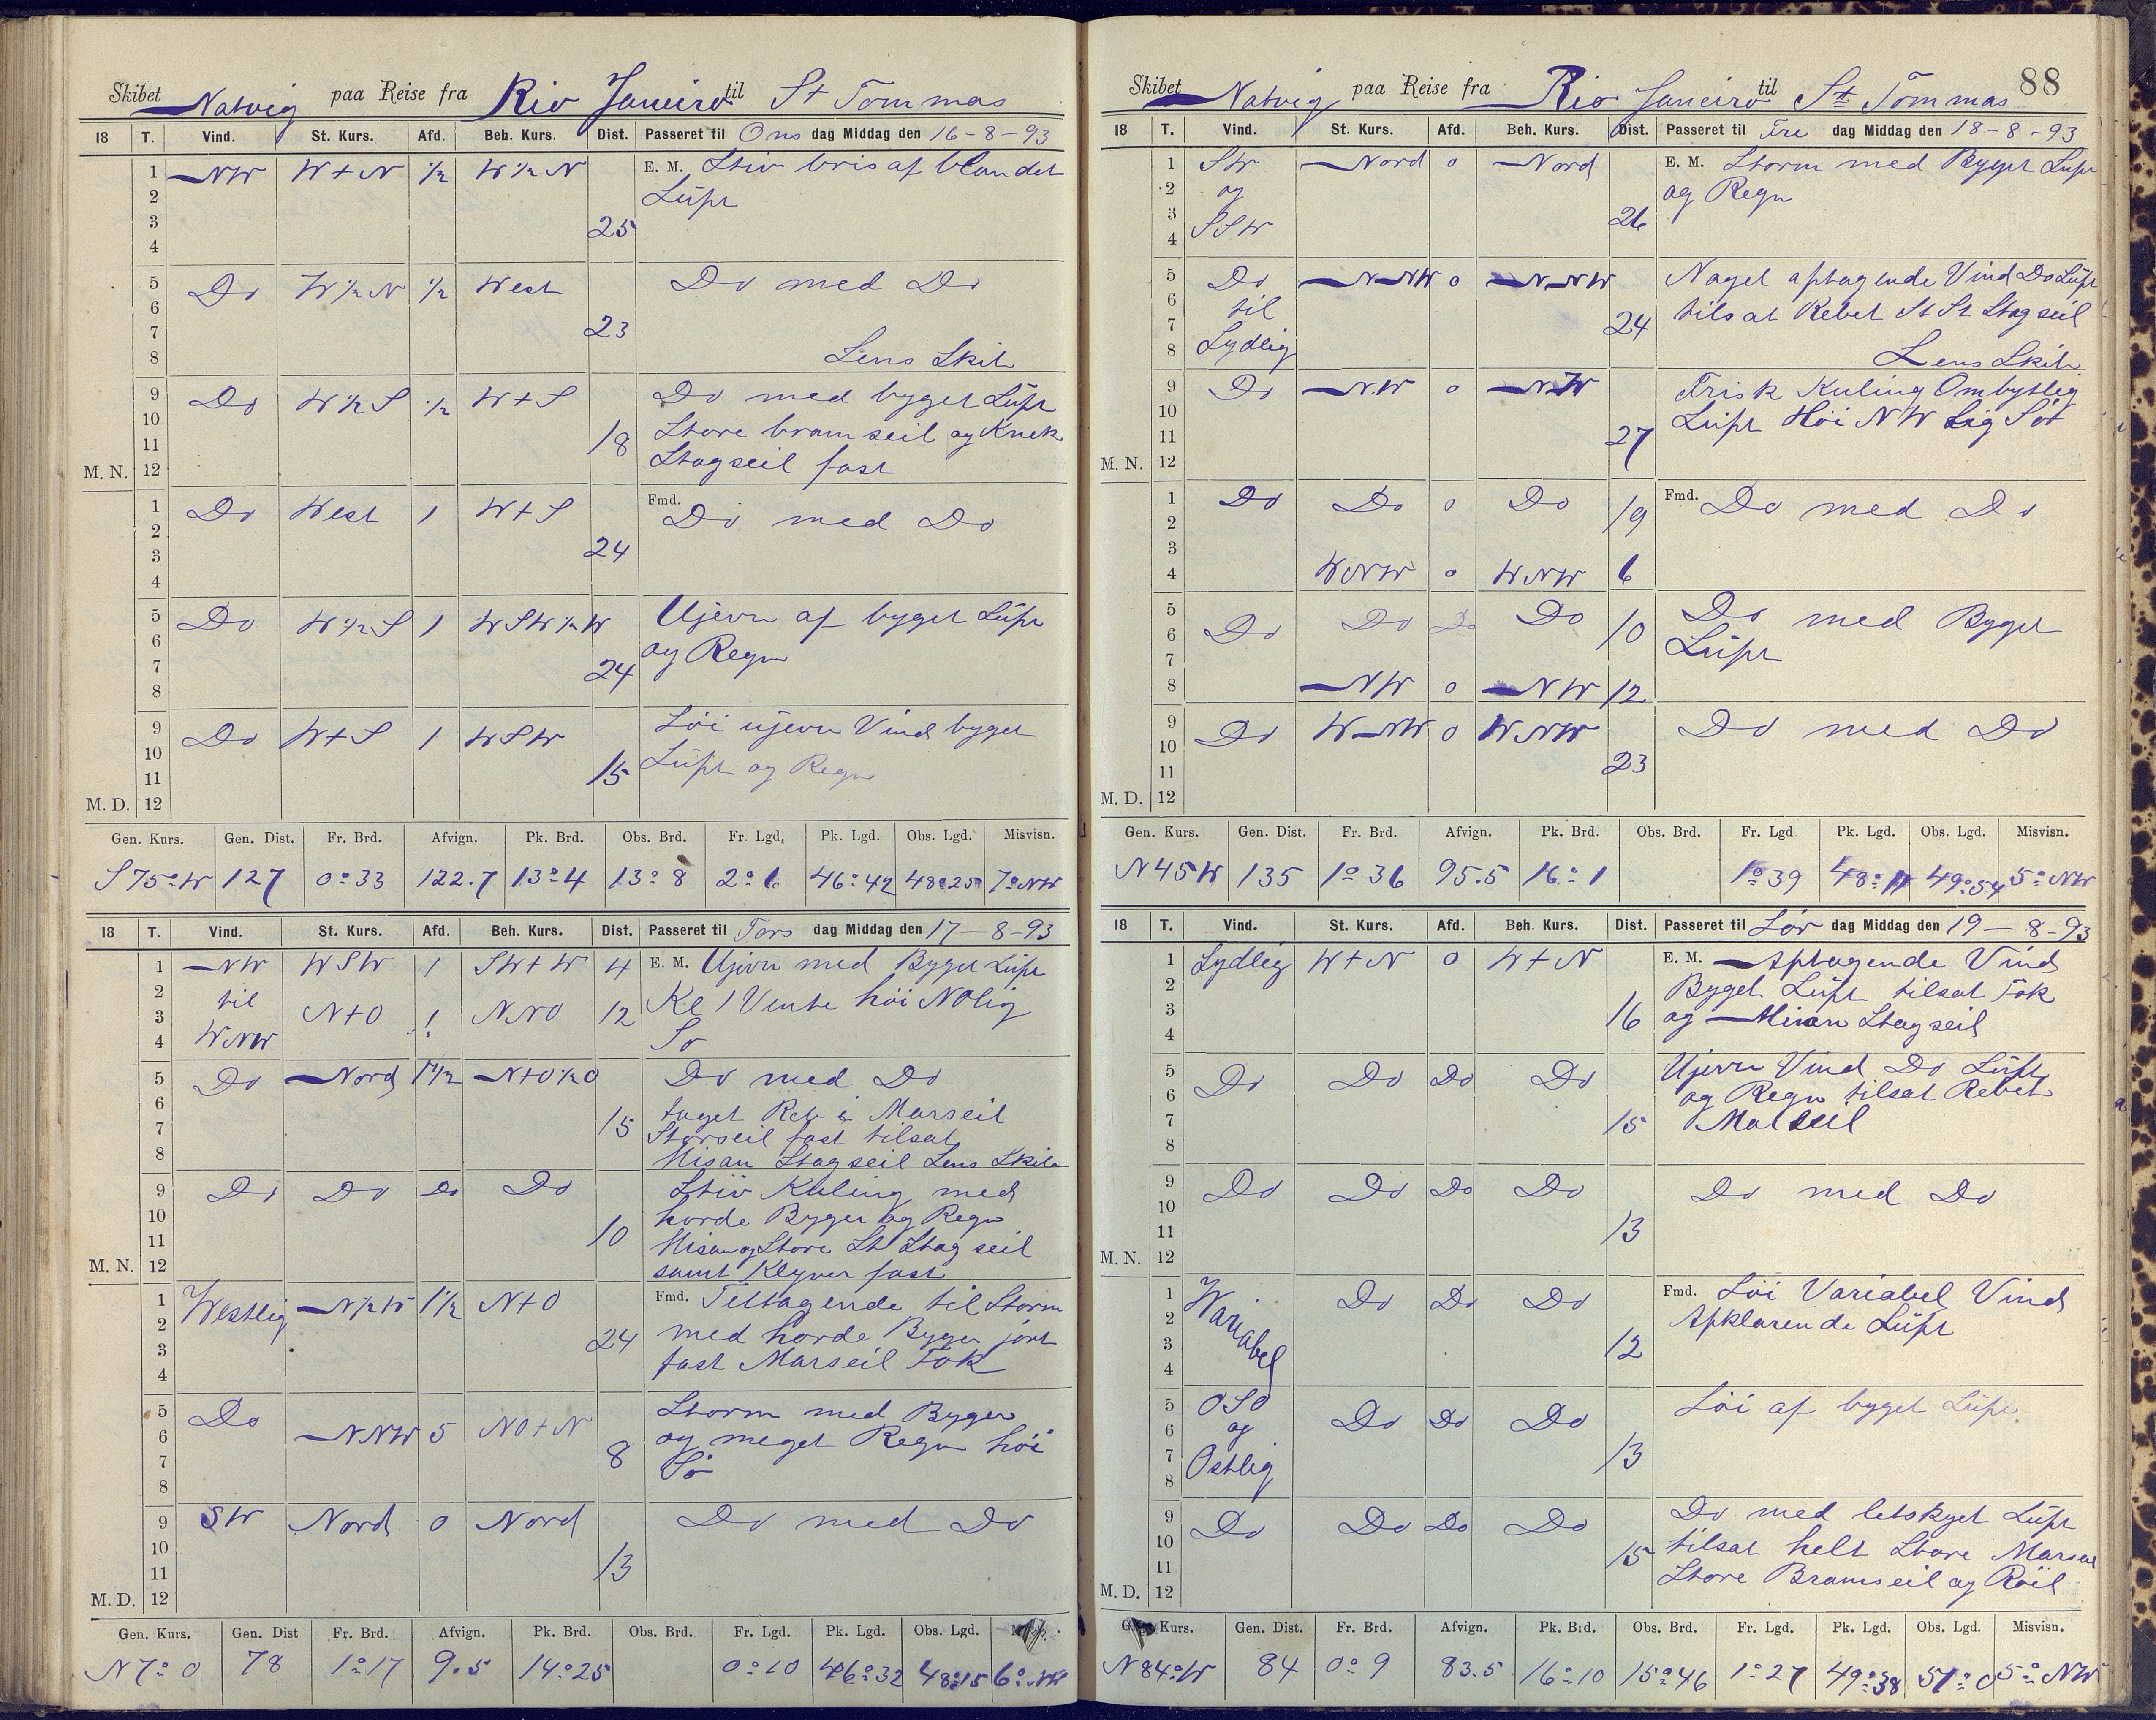 Skibet Natvig paa Reise fra Rio Janeiro til St Tommas
18 T. Vind. St. Kurs. Afd. Beh. Kurs. Dist. Passeret til Ons dag Middag den 16-8-93
1 NW W+N ½ W½N E. M. Stiv bris af blandet
2 Lüft
3 25
4
5 Do W½N ½ West Do med Do
6
7 23
8 Lens Skib
9 Do W½S ½ W+S Do med byget Lüft
10 Store bramseil og Knek
11 18 Stagseil fast
M. N. 12
1 Do West 1 W+S Fmd. Do med Do
2
3 24
4
5 Do W½S 1 WSW½W Ujevn af byget Lüft
6 og Regn
7 24
8
9 Do W+S 1 WSW Löi ujevn Vind byget
10 Lüft og Regn
11 15
M. D. 12
Gen. Kurs. Gen. Dist. Fr. Brd. Afvign. Pk. Brd. Obs. Brd. Fr. Lgd. Pk. Lgd. Obs. Lgd. Misvisn.
S75°W 127 0°33 122.7 13°4 13°8 2°6 46°42 48°25 7°NW
18 T. Vind. St. Kurs. Afd. Beh. Kurs. Dist. Passeret til Tors dag Middag den 17-8-93
1 NW WSW 1 SW+W 4 E. M. Ujevn med Byget Lüft
2 til
3 N+O 1 NNO 12 Kl 1 Vente höi NOlig
4 WNW Sö
5 Do Nord 1½ N+O½O Do med Do
6 taget Reb i Marseil
7 15 Storseil fast tilsat
8 Misan Stagseil Lens Skib
9 Do Do Do Do Stiv Kuling med
10 horde Byger og Regn
11 10 Misan og Store St Stagseil
M. N. 12 samt Klyver fast
1 Westlig N½W 1½ N+O Fmd. Tiltagende til Storm
2 24 med horde Byger jort
3 fast Marseil Fok
4
5 Do NNW 5 NO+N Storm med Byger
6 og meget Regn höi
7 8 Sö
8
9 SW Nord 0 Nord Do med Do
10
11 13
M. D. 12
Gen. Kurs. Gen. Dist Fr. Brd. Afvign. Pk. Brd. Obs. Brd. Fr. Lgd. Pk. Lgd. Obs. Lgd.
N7°O 78 1°17 9.5 14°25 0°10 46°32 48°15 6°NW
Skibet Natvig paa Reise fra Rio Janeiro til St Tommas 88
18 T. Vind. St. Kurs. Afd. Beh. Kurs. Dist. Passeret til Fre dag Middag den 18-8-93
1 SW Nord 0 Nord E. M. Storm med Byget Lüft
2 og og Regn
3 SSW 26
4
5 Do NNW 0 NNW Noget aftagende Vind Do Lüft
6 til tilsat Rebet St St Stagseil
7 24
8 Sydlig Lens Skib
9 Do NW 0 NW Frisk Kuling Ombytlig
10 Lüft Höi NWlig Sö
11 27
M. N. 12
1 Do Do 0 Do 19 Fmd. Do med Do
2
3
4 WNW 0 WNW 6
5 Do Do Do Do 10 Do med Byget
6 Lüft
7
8 NW 0 NW 12
9 Do WNW 0 WNW Do med Do
10
11 23
M. D. 12
Gen. Kurs. Gen. Dist. Fr. Brd. Afvign. Pk. Brd. Obs. Brd. Fr. Lgd Pk. Lgd. Obs. Lgd. Misvisn.
N45W 135 1°36 95.5 16°1 1°39 48°11 49°54 5°NW
18 T. Vind. St. Kurs. Afd. Beh. Kurs. Dist. Passeret til Lör dag Middag den 19-8-93
1 Sydlig W+N 0 W+N E. M. Aftagende Vind
2 Byget Lüft tilsat Fok
3 16 og Misan Stagseil
4
5 Do Do Do Do Ujevn Vind Do Lüft
6 og Regn tilsat Rebet
7 15 Marseil
8
9 Do Do Do Do Do med Do
10
11 13
M. N. 12
1 Variabel Do Do Do Fmd. Löi Variabel Vind
2 Afklarende Lüft
3 12
4
5 OSO Do Do Do Löi af byget Lüft
6 og
7 Ostlig 13
8
9 Do Do Do Do Do med letskyet Lüft
10 tilsat helt Store Marseil
11 15 Store Bramseil og Röil
M. D. 12
Kurs. Gen. Dist. Fr. Brd. Afvign. Pk. Brd. Obs. Brd. Fr. Lgd. Pk. Lgd. Obs. Lgd. Misvisn.
N84°W 84 0°9 83.5 16°10 15°46 1°27 49°38 51°0 5°NW